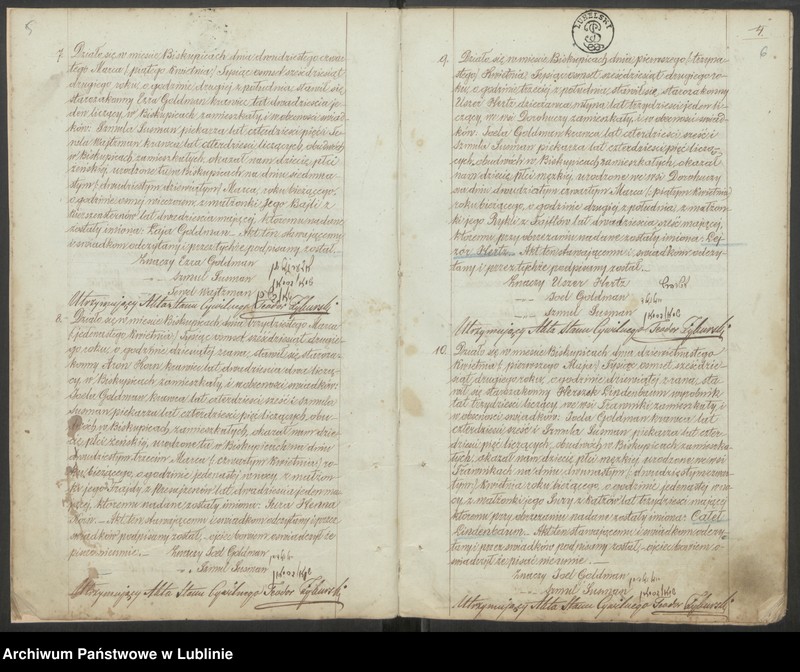 5
7. Działo się w mieście Biskupicach dnia dwudziestego czwar-
tego Marca /piątego Kwietnia/ Tysiąc ośmset sześćdziesiąt
drugiego roku, o godzinie drugiej z południa, stawił się
starozakonny Ezra Goldman krawiec lat dwadzieścia je-
den liczący, w Biskupicach zamieszkały i w obecności świad-
ków: Szmula Susman piekarza lat czterdzieści pięć i Se-
nela Wajtzman krawca lat czterdzieści liczących, obudwóch
w Biskupicach zamieszkałych, okazał nam dziecię płci
żeńskiej, urodzone tu w Biskupicach na dniu siedmna-
stym /dwudziestym dziewiątym/ Marca, roku bieżącego,
o godzinie ósmej wieczorem z małżonki jego Bajli z
lat dwadzieścia mającej, któremu nadane
zostały imiona: Łaja Goldman. Akt ten stawającemu
i świadkom odczytany i przez tychże podpisany został.
Znaczy Ezra Goldman
Szmul Susman
Senel Wajtzman
Utrzymujący Akta Stanu Cywilnego
8. Działo się w mieście Biskupicach dnia trzydziestego Marca
/jedenastego Kwietnia/ Tysiąc ośmset sześćdziesiąt drugie-
go roku, o godzinie dziesiątej z rana, stawił się staroza-
konny Aron Horn krawiec lat dwadzieścia dwa liczą-
cy, w Biskupicach zamieszkały i w obecności świadków:
Joela Goldman krawca lat czterdzieści sześć i Szmula
Susman piekarza lat czterdzieści pięć liczących, obu-
dwóch w Biskupicach zamieszkałych, okazał nam dzie-
cię płci żeńskiej, urodzone tu w Biskupicach na dniu
dwudziestym trzecim Marca /czwartym Kwietnia/ ro-
ku bieżącego, o godzinie jedenastej w nocy z małżon-
ki jego Frajdy z lat dwadzieścia jeden ma-
jącej, któremu nadane zostały imiona: Sura Henna
Horn. Akt ten stawającemu i świadkom odczytany i przez
świadków podpisany został, ojciec bowiem oświadczył że
pisać nie umie.
Znaczy Joel Goldman
Szmul Susman
Utrzymujący Akta Stanu Cywilnego
LUBELSKI
4
6
9. Działo się w mieście Biskupicach dnia pierwszego /trzyna-
stego/ Kwietnia Tysiąc ośmset sześćdziesiąt drugiego ro-
ku, o godzinie trzeciej z południa, stawił się, starozakonny
Uszer Hertz dzierżawca młyna lat trzydzieści jeden li-
czący, we wsi Dorohuczy zamieszkały i w obecności świad-
ków: Joela Goldman krawca lat czterdzieści sześć i
Szmula Susman piekarza lat czterdzieści pięć liczą-
cych, obudwóch w Biskupicach zamieszkałych, okazał
nam dziecię płci męzkiej, urodzone we wsi Dorohuczy
na dniu dwudziestym czwartym Marca /piątym Kwietnia/
roku bieżącego, o godzinie drugiej z południa z małżon-
ki jego Ryfki z Fajflów lat dwadzieścia sześć mającej,
któremu przy obrzezaniu nadane zostały imiona: Lej-
zor Hertz. Akt ten stawającemu i świadkom odczy-
tany i przez tychże podpisany został.
Znaczy Uszer Hertz
Joel Goldman
Szmul Susman
Utrzymujący Akta Stanu Cywilnego
10. Działo się w mieście Biskupicach dnia dziewiętnastego
Kwietnia /pierwszego Maja/ Tysiąc ośmset sześćdzie-
siąt drugiego roku, o godzinie dziewiątej z rana, sta-
wił się starozakonny Herszek Lindenbaum wyrobnik
lat trzydzieści liczący, we wsi Trawnikach zamieszkały, i
w obecności świadków: Joela Goldman krawca lat
czterdzieści sześć i Szmula Susman piekarza lat czter-
dzieści pięć liczących, obudwóch w Biskupicach zamieszka-
łych, okazał nam dziecię płci męzkiej urodzone we wsi
Trawnikach na dniu dwunastym /dwudziestym czwar-
tym/ Kwietnia roku bieżącego, o godzinie jedenastej w no-
cy z małżonki jego Sury z Katzów lat trzydzieści mającej
któremu przy obrzezaniu nadane zostały imiona: Calel
Lindenbaum. Akt ten stawającemu i świadkom odczy-
tany i przez świadków podpisany został, ojciec bowiem o-
świadczył że pisać nie umie.
Znaczy Joel Goldman
Szmul Susman
Utrzymujący Akta Stanu Cywilnego
Archiwum Państwowe w Lublinie